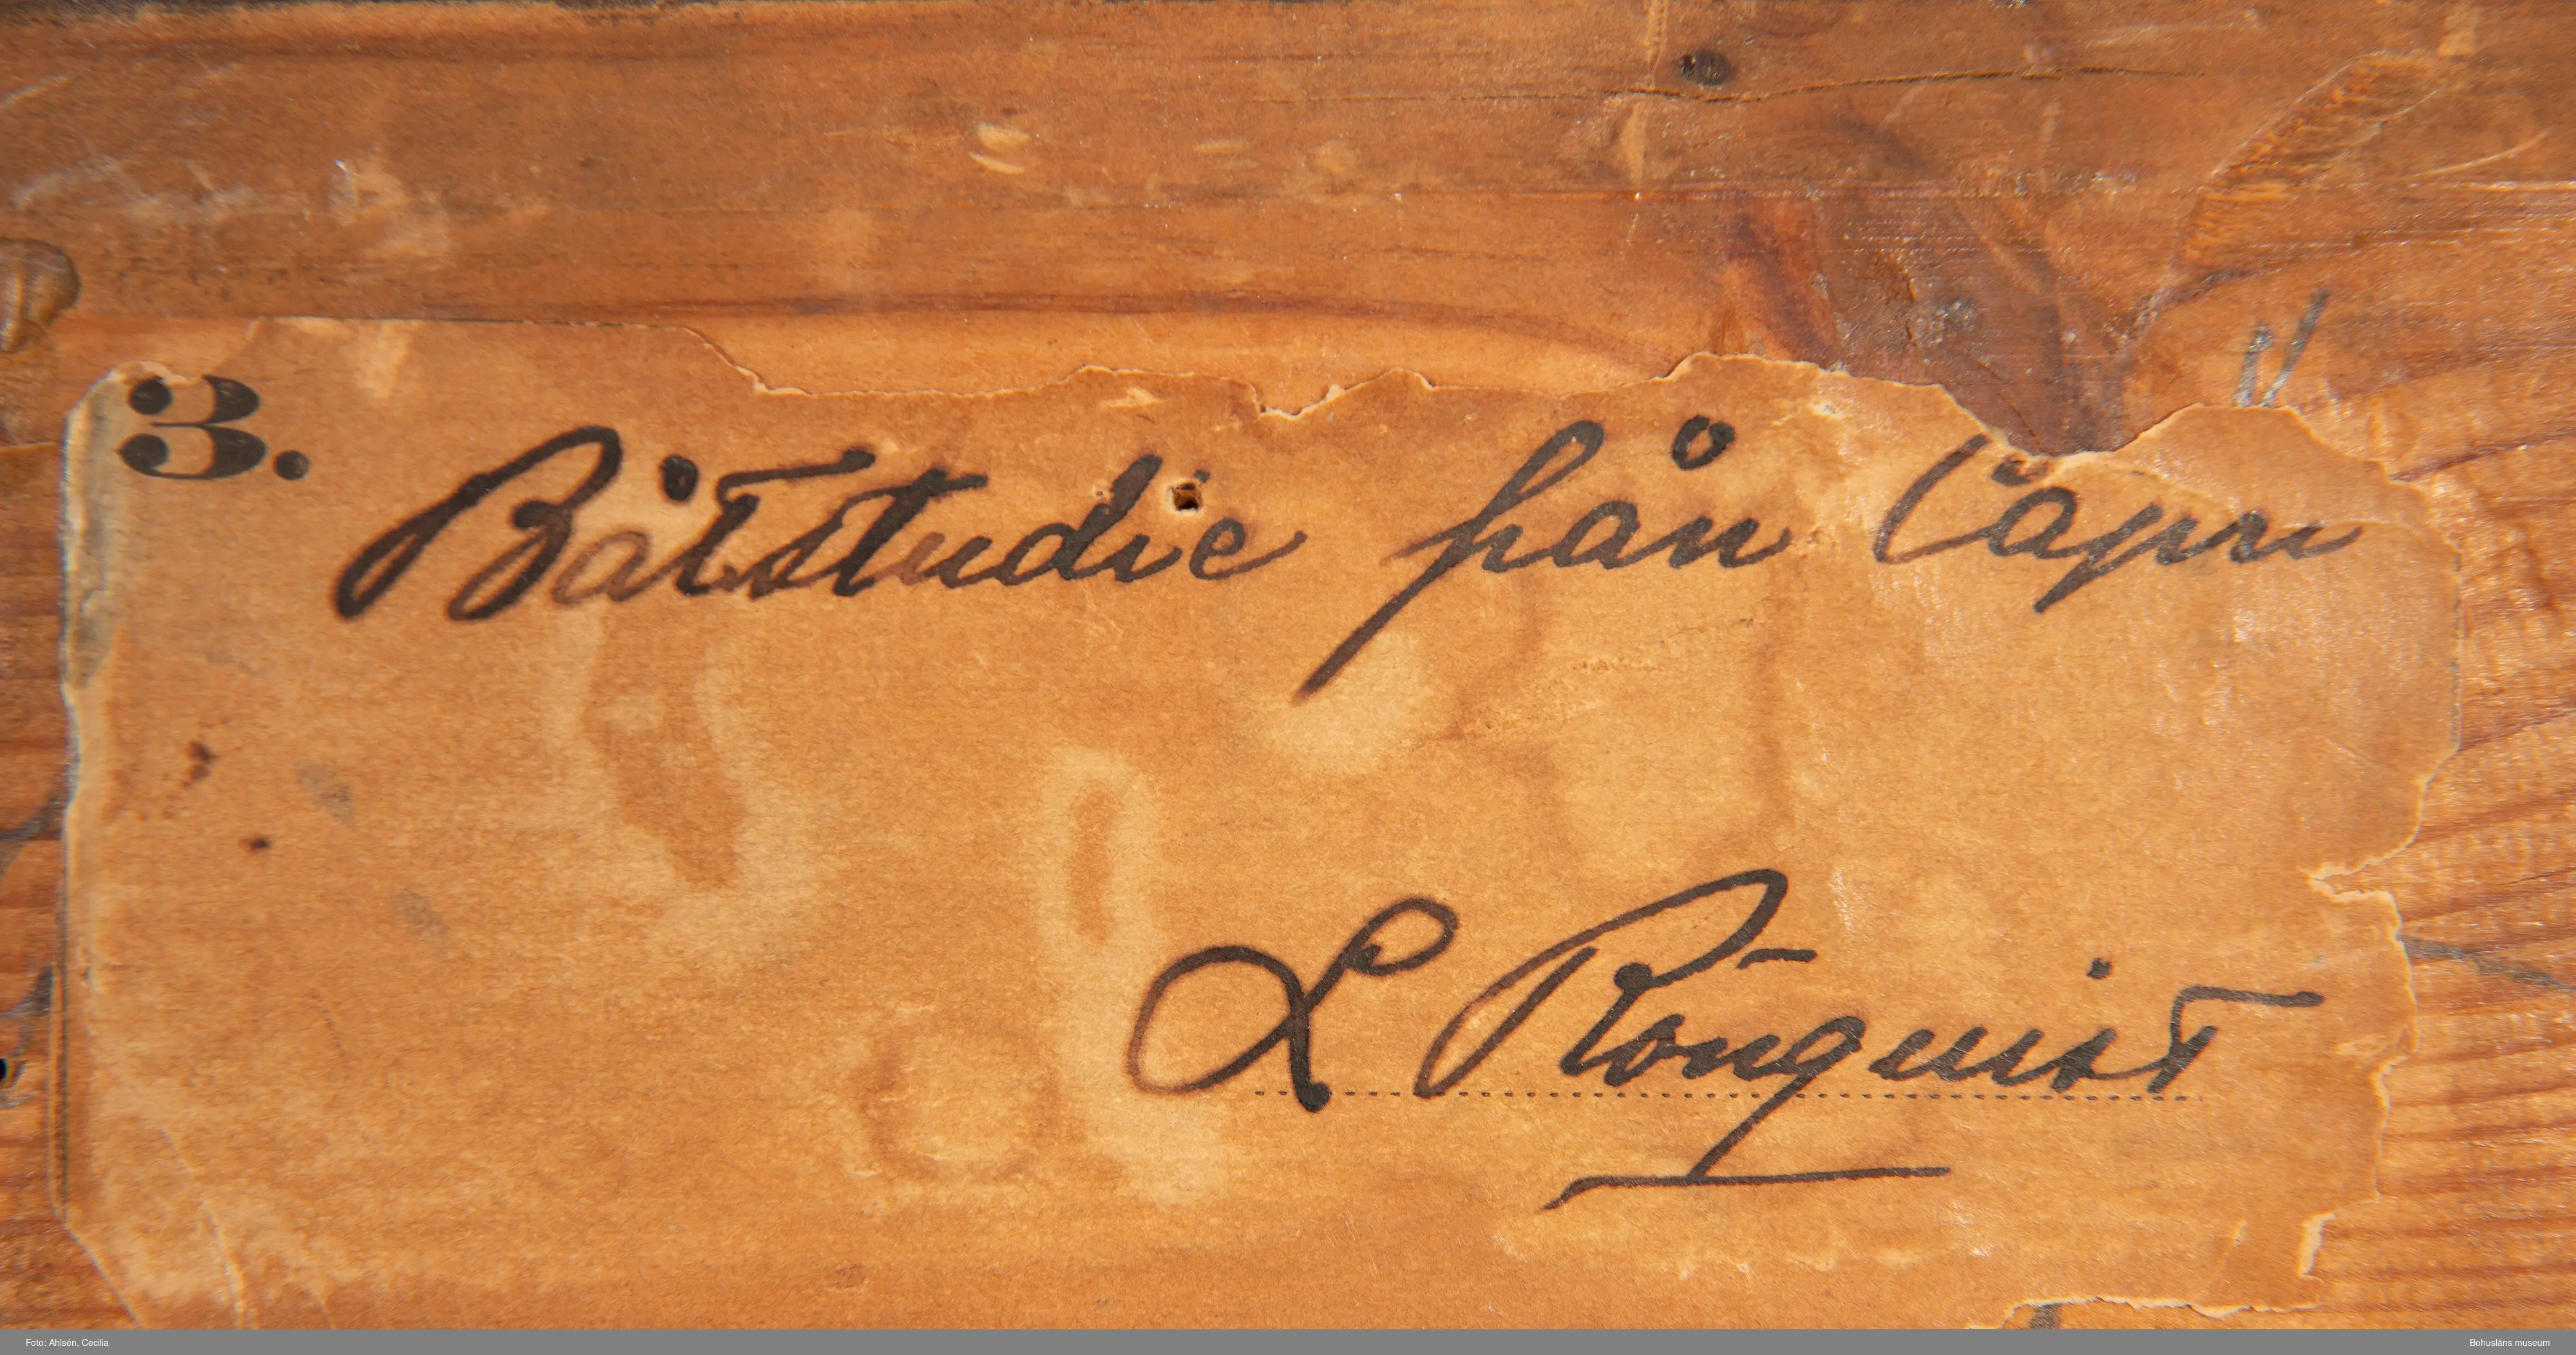 3.
Båtstudie från Capri
L Rönquist
Foto: Ahlsén, Cecilia
Bohusläns museum